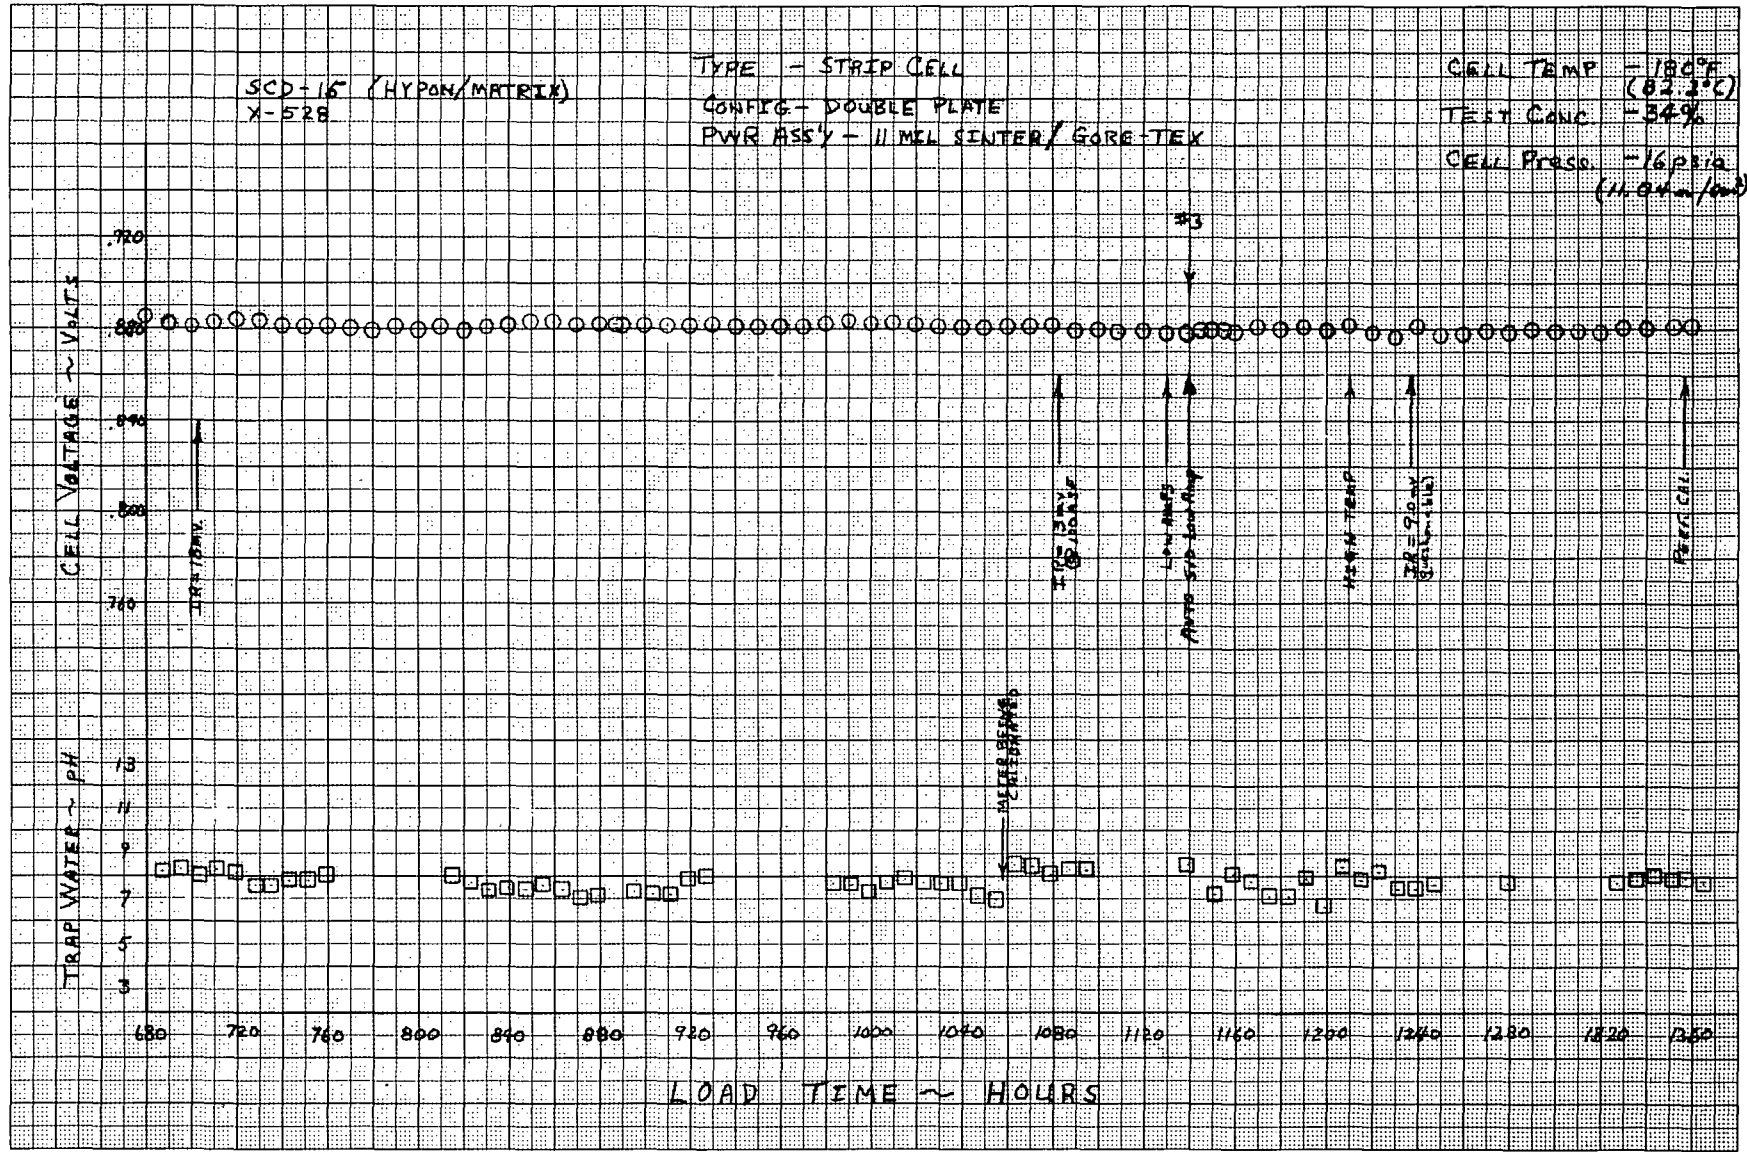 SCD-16 (HYPON/MATRIX)
X-528
TYPE - STRIP CELL
CONFIG - DOUBLE PLATE
PWR ASS'Y - 11 MIL SINTER/ GORE-TEX
CELL TEMP - 180°F
(82.2°C)
TEST CONC. - 34%
CELL Press. - 16 psia
(11.04 n/cm²)
#3
CELL VOLTAGE ~ VOLTS
.920
.880
.840
.800
.760
IR=18MV.
IR=13mv
@ 100ASF
LOW AMPS
AUTO S/D LOW Amp
HIGH TEMP
IR=9.0mv
(questionable)
PERF. CAL
METER BEING
CALIBRATED
TRAP WATER ~ pH
13
11
9
7
5
3
680 720 760 800 840 880 920 960 1000 1040 1080 1120 1160 1200 1240 1280 1320 1360
LOAD TIME ~ HOURS